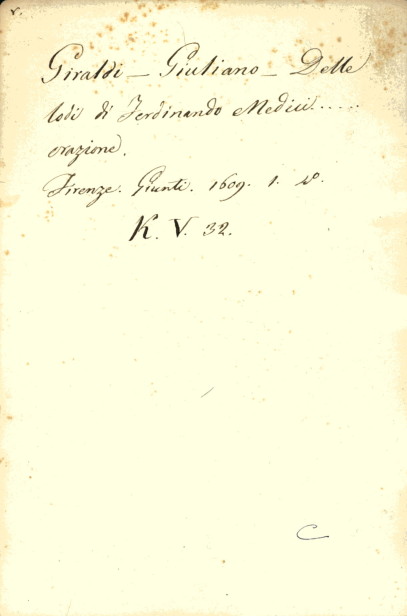 Giraldi - Giuliano - Delle
lodi di Ferdinando Medici.....
orazione.
Firenze. Giunti. 1609. 1. 4°.
K. V. 32.
C